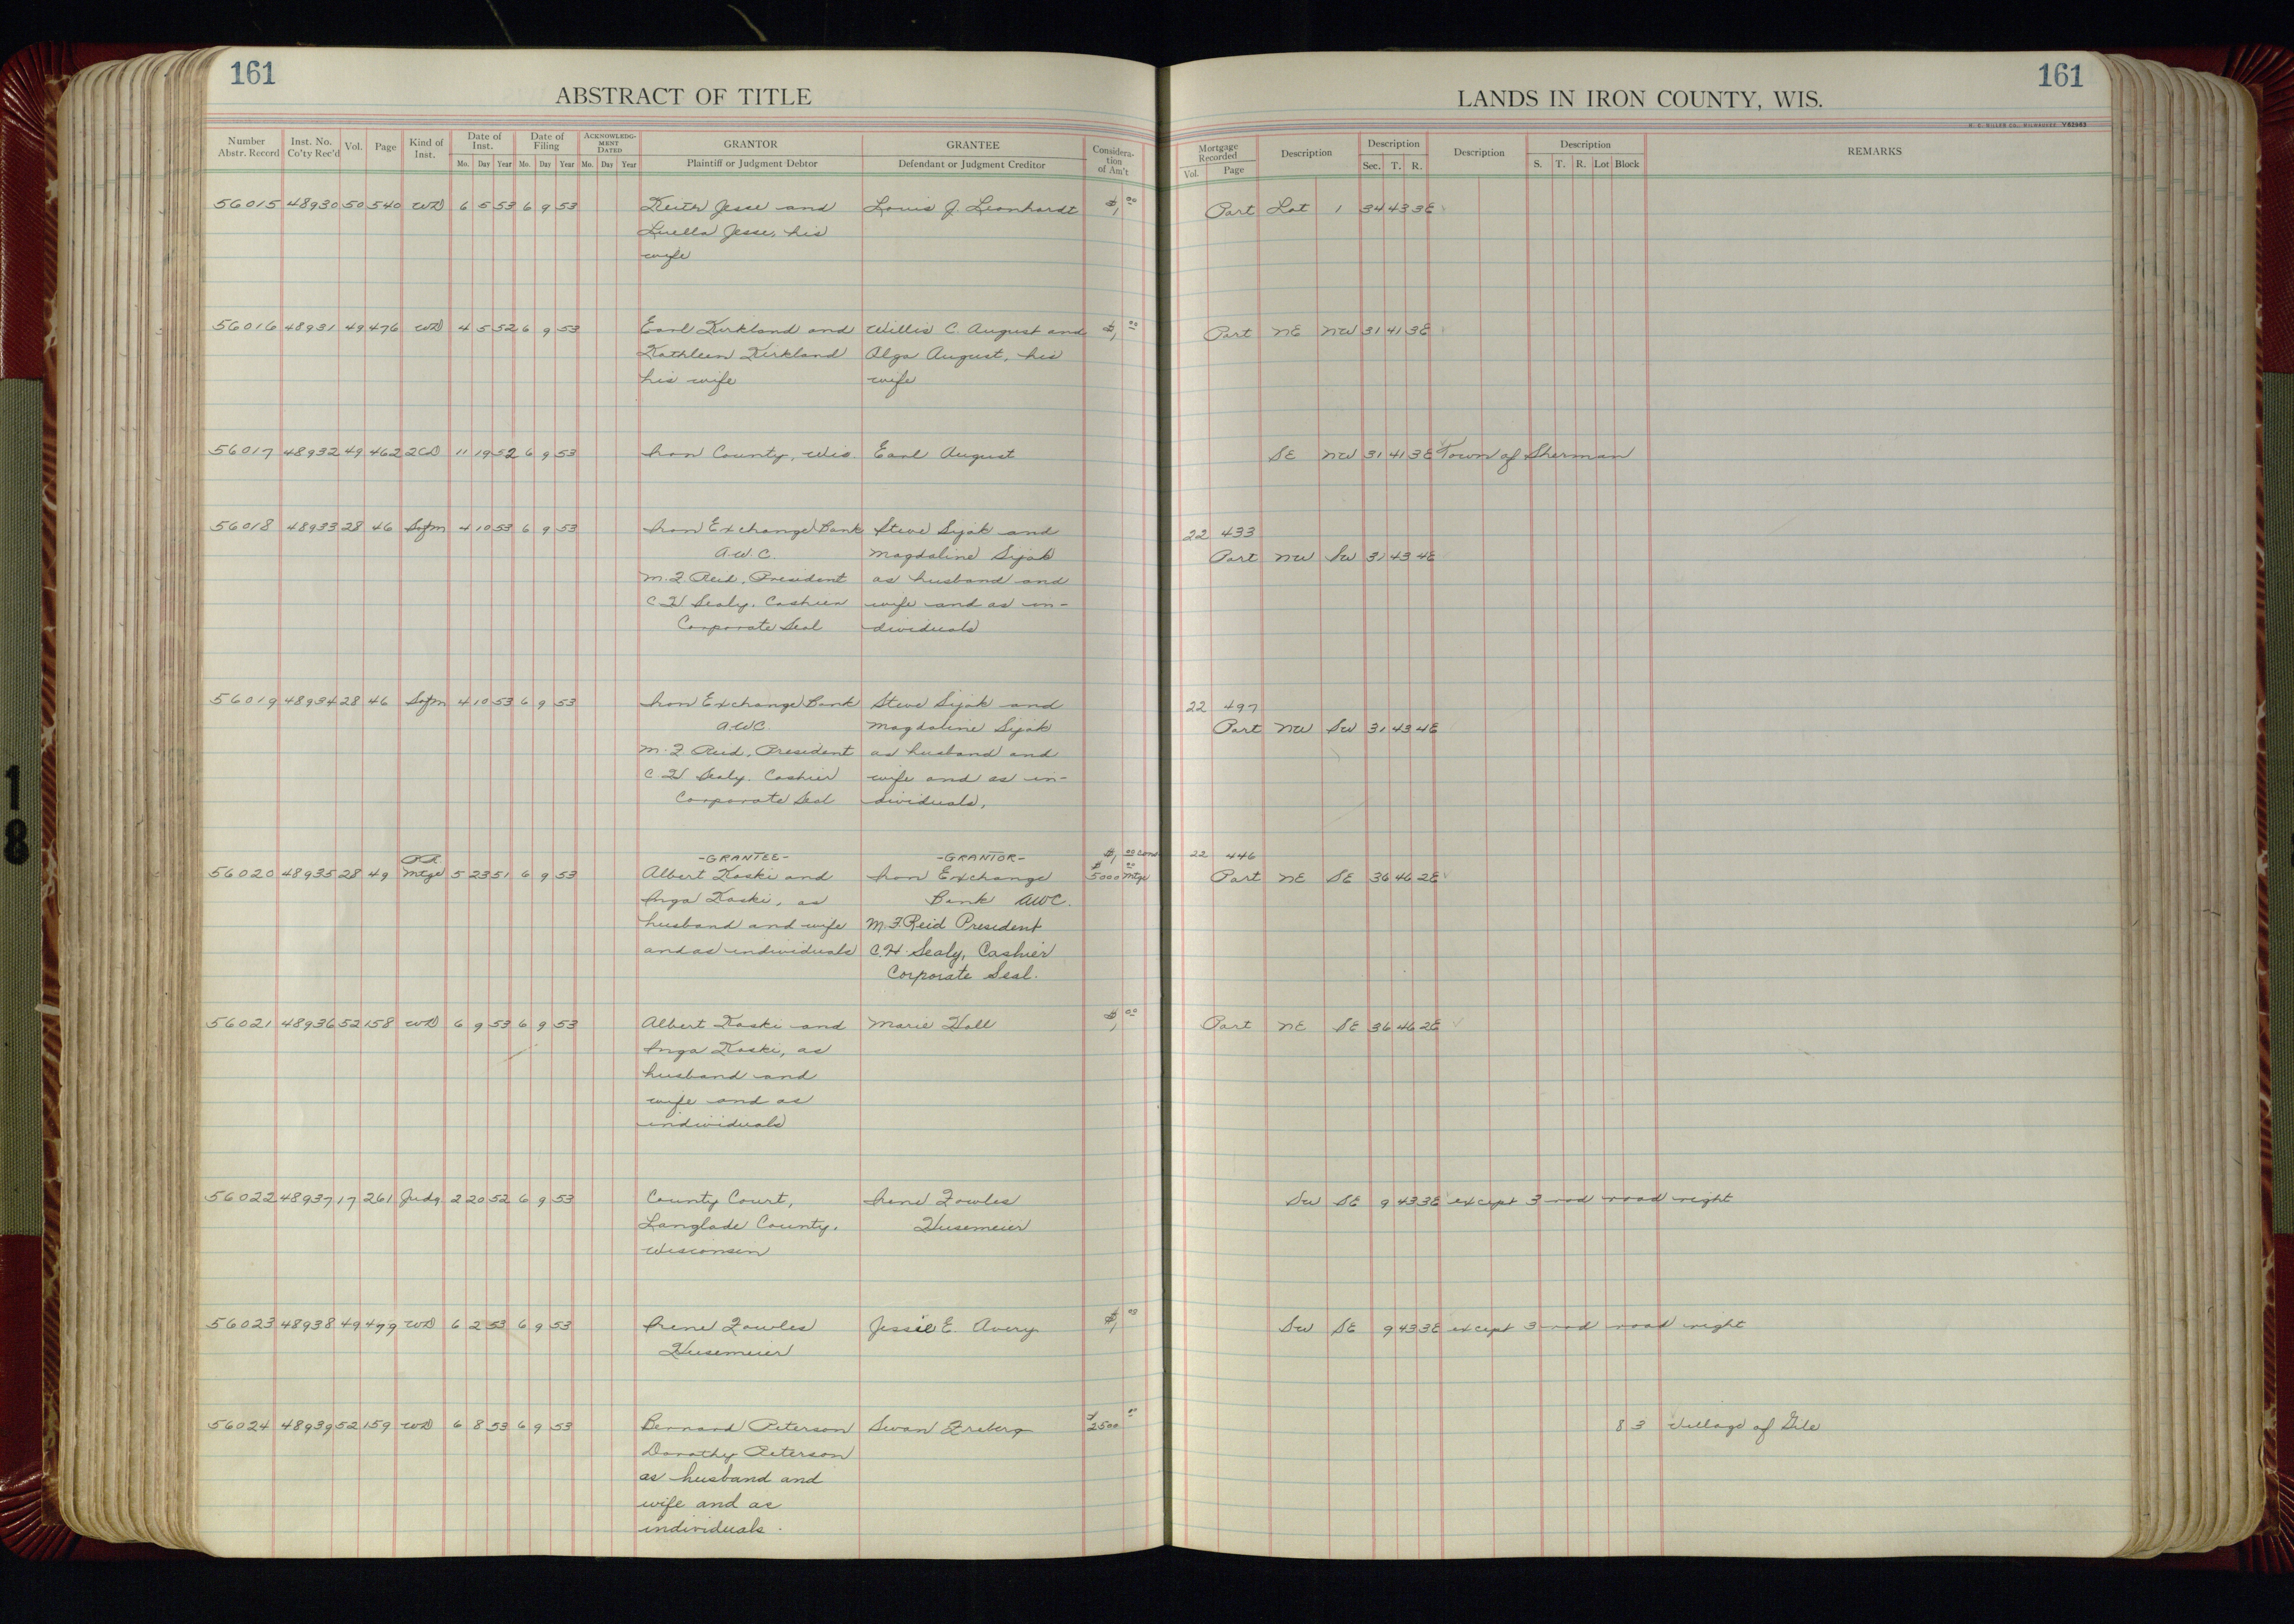 161
161
ABSTRACT OF TITLE
LANDS IN IRON COUNTY, WIS.
H. C. MILLER CO., MILWAUKEE V62983
Number Abstr. Record Inst. No. Co'ty Rec'd Vol. Page Kind of Inst. Date of Inst. Mo. Day Year Date of Filing Mo. Day Year ACKNOWLEDGMENT DATED Mo. Day Year GRANTOR Plaintiff or Judgment Debtor GRANTEE Defendant or Judgment Creditor Consideration of Am't
Mortgage Recorded Vol. Page Description Description Sec. T. R. Description Description S. T. R. Lot Block REMARKS
56015 48930 50 540 WD 6 5 53 6 9 53 Jesse and Louis J. Leonhardt $1,00 Part Lot 1 34 43 3E
Luella Jesse, his
wife
56016 48931 49 476 WD 4 5 52 6 9 53 Earl Kirkland and Willis C. August and $1,00 Part NE NW 31 41 3E
Kathleen Kirkland Olga August, his
his wife wife
56017 48932 49 462 2CD 11 19 52 6 9 53 Iron County, Wis. Earl August SE NW 31 41 3E Town of Sherman
56018 48933 28 46 Sofm 4 10 53 6 9 53 Iron Exchange Bank Steve Sijak and 22 433
A.W.C. Magdaline Sijak Part NW SW 31 43 4E
M. F. Reid, President as husband and
C H Sealy, Cashier wife and as in-
Corporate Seal dividuals
56019 48934 28 46 Sofm 4 10 53 6 9 53 Iron Exchange Bank Steve Sijak and 22 497
A.W.C. Magdaline Sijak Part NW SW 31 43 4E
M. F. Reid, President as husband and
C. H Sealy, Cashier wife and as in-
Corporate Seal dividuals,
P.R. -GRANTEE- -GRANTOR- $1,00 cons 22 446
56020 48935 28 49 Mtge 5 23 51 6 9 53 Albert Koski and Iron Exchange $5000 00 Mtge Part NE SE 36 46 2E
Inga Koski, as Bank AWC.
husband and wife M. F. Reid President
and as individuals C. H. Sealy, Cashier
Corporate Seal.
56021 48936 52 158 WD 6 9 53 6 9 53 Albert Koski and Marie Hall $1,00 Part NE SE 36 46 2E
Inga Koski, as
husband and
wife and as
individuals
56022 48937 17 261 Judg 2 20 52 6 9 53 County Court, Irene Fowles SW SE 9 43 3E except 3 rod road right
Langlade County, Husemeier
Wisconsin
56023 48938 49 479 WD 6 2 53 6 9 53 Irene Fowles Jessie E. Avery $1,00 SW SE 9 43 3E except 3 rod road right
Husemeier
56024 48939 52 159 WD 6 8 53 6 9 53 Bernard Peterson Swan Freberg $2500 00 8 3 Village of Gile
Dorothy Peterson
as husband and
wife and as
individuals.
18